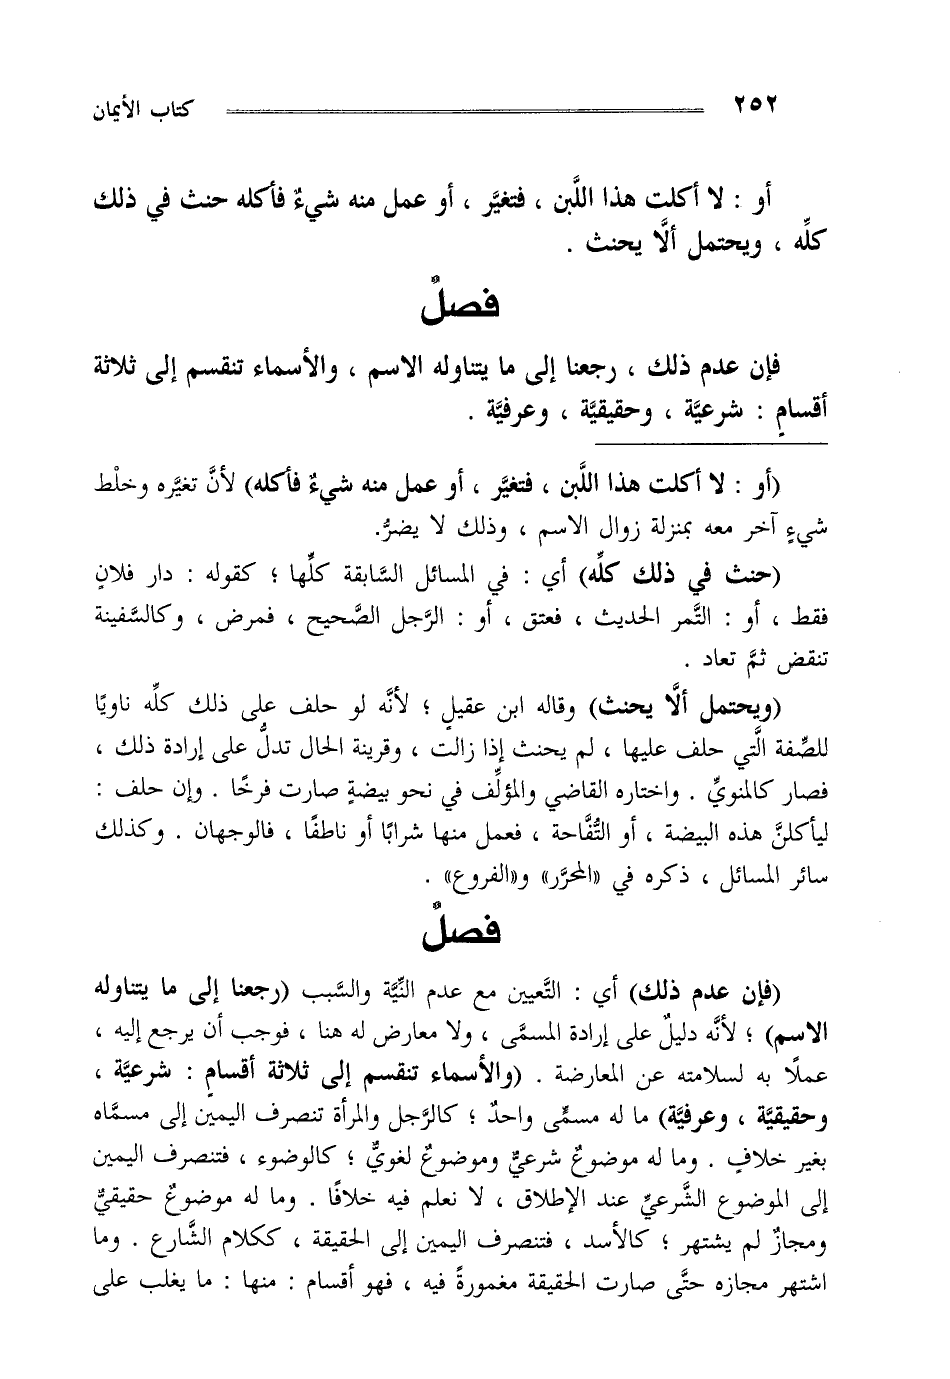 ٢٥٢ كتاب الأيمان
أو : لا أكلت هذا اللَّبن ، فتغيَّر ، أو عمل منه شيءٌ فأكله حنث في ذلك
كلِّه ، ويحتمل ألَّا يحنث .
فصلٌ
فإن عدم ذلك ، رجعنا إلى ما يتناوله الاسم ، والأسماء تنقسم إلى ثلاثة
أقسامٍ : شرعيَّة ، وحقيقيَّة ، وعرفيَّة .
(أو : لا أكلت هذا اللَّبن ، فتغيَّر ، أو عمل منه شيءٌ فأكله) لأنَّ تغيَّره وخلْط
شيءٍ آخر معه بمنزلة زوال الاسم ، وذلك لا يضرُّ.
(حنث في ذلك كلِّه) أي : في المسائل السَّابقة كلِّها ؛ كقوله : دار فلانٍ
فقط ، أو : التَّمر الحديث ، فعتق ، أو : الرَّجل الصَّحيح ، فمرض ، وكالسَّفينة
تنقض ثمَّ تعاد .
(ويحتمل ألَّا يحنث) وقاله ابن عقيلٍ ؛ لأنَّه لو حلف على ذلك كلِّه ناويًا
للصِّفة الَّتي حلف عليها ، لم يحنث إذا زالت ، وقرينة الحال تدلُّ على إرادة ذلك ،
فصار كالمنويِّ . واختاره القاضي والمؤلِّف في نحو بيضةٍ صارت فرخًا . وإن حلف :
ليأكلنَّ هذه البيضة ، أو التُّفَّاحة ، فعمل منها شرابًا أو ناطفًا ، فالوجهان . وكذلك
سائر المسائل ، ذكره في «المحرَّر» و«الفروع» .
فصلٌ
(فإن عدم ذلك) أي : التَّعيين مع عدم النِّيَّة والسَّبب (رجعنا إلى ما يتناوله
الاسم) ؛ لأنَّه دليلٌ على إرادة المسمَّى ، ولا معارض له هنا ، فوجب أن يرجع إليه ،
عملًا به لسلامته عن المعارضة . (والأسماء تنقسم إلى ثلاثة أقسامٍ : شرعيَّة ،
وحقيقيَّة ، وعرفيَّة) ما له مسمًّى واحدٌ ؛ كالرَّجل والمرأة تنصرف اليمين إلى مسمَّاه
بغير خلافٍ . وما له موضوعٌ شرعيٌّ وموضوعٌ لغويٌّ ؛ كالوضوء ، فتنصرف اليمين
إلى الموضوع الشَّرعيِّ عند الإطلاق ، لا نعلم فيه خلافًا . وما له موضوعٌ حقيقيٌّ
ومجازٌ لم يشتهر ؛ كالأسد ، فتنصرف اليمين إلى الحقيقة ، ككلام الشَّارع . وما
اشتهر مجازه حتَّى صارت الحقيقة مغمورةً فيه ، فهو أقسام : منها : ما يغلب على